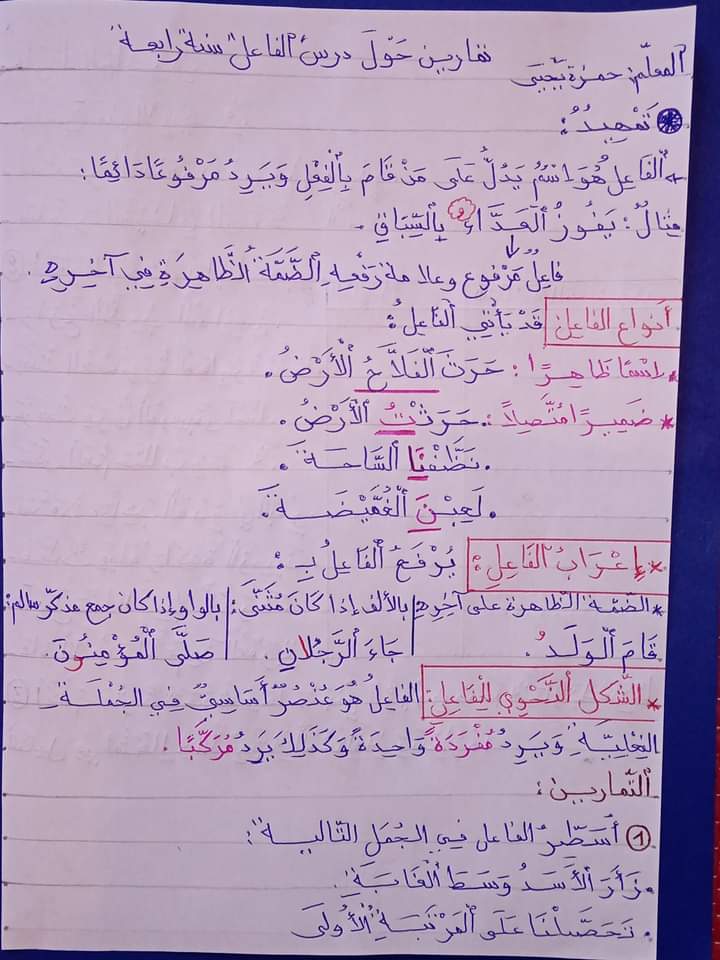 المعلّم: حمزة يحيى
تمارين حَوْلَ درسُ "الفاعل" سنة رابعة
تَمْهِيدٌ:
اَلْفَاعِلُ هُوَ اِسْمٌ يَدُلُّ عَلَى مَنْ قَامَ بِالْفِعْلِ وَيَرِدُ مَرْفُوعًا دَائِمًا:
مِثَالٌ: يَفُوزُ اَلْعَدَّاءُ بِالسِّبَاقِ.
فاعِلٌ مَرْفوع وعلامة رَفْعِهِ اَلضَّمَّةُ الظَّاهِرَةِ فِي آخِرِهِ.
أنواع الفاعل: قَدْ يَأْتِي اَلْفَاعِلُ:
* اِسْمًا ظَاهِرًا: حَرَثَ اَلْفَلاَّحُ اَلْأَرْضُ.
* ضَمِيرًا مُتَّصِلاً: حَرَثْتُ اَلْأَرْضُ.
نَظَّفْنَا السَّاحَةَ.
لَعِبْنَ اَلْغُمَّيْضَةَ.
* إِعْرَابُ الفَاعِلِ: يُرْفَعُ اَلْفَاعِلُ بِ:
* الضمّة الظّاهرة على آخِرِهِ | بالألف إذا كَانَ مُثَنَّى: | بالواو إذا كان جمع مذكّر سالم:
قَامَ اَلْوَلَدُ. | جَاءَ الرَّجُلانِ. | صَلَّى اَلْمُؤْمِنُونَ.
* الشَّكل اَلنَّحْوِي لِلفَاعِلِ: الفَاعِلُ هُوَ عُنْصُرٌ أَسَاسِيٌّ فِي الجُمْلَةِ
الفِعْلِيَّةِ وَيَرِدُ مُفْرَدَةً وَاحِدَةً وَكَذَلِكَ يَرِدُ مُرَكَّبًا.
اَلتَّمَارِين:
① أُسَطِّرُ الفاعل فِي الجُمَلِ التّالِيةِ:
. زَأَرَ الأَسَدُ وَسَطَ اَلْغَابَةِ.
. تَحَصَّلْنَا عَلَى اَلْمَرْتَبَةِ اَلْأُولَى